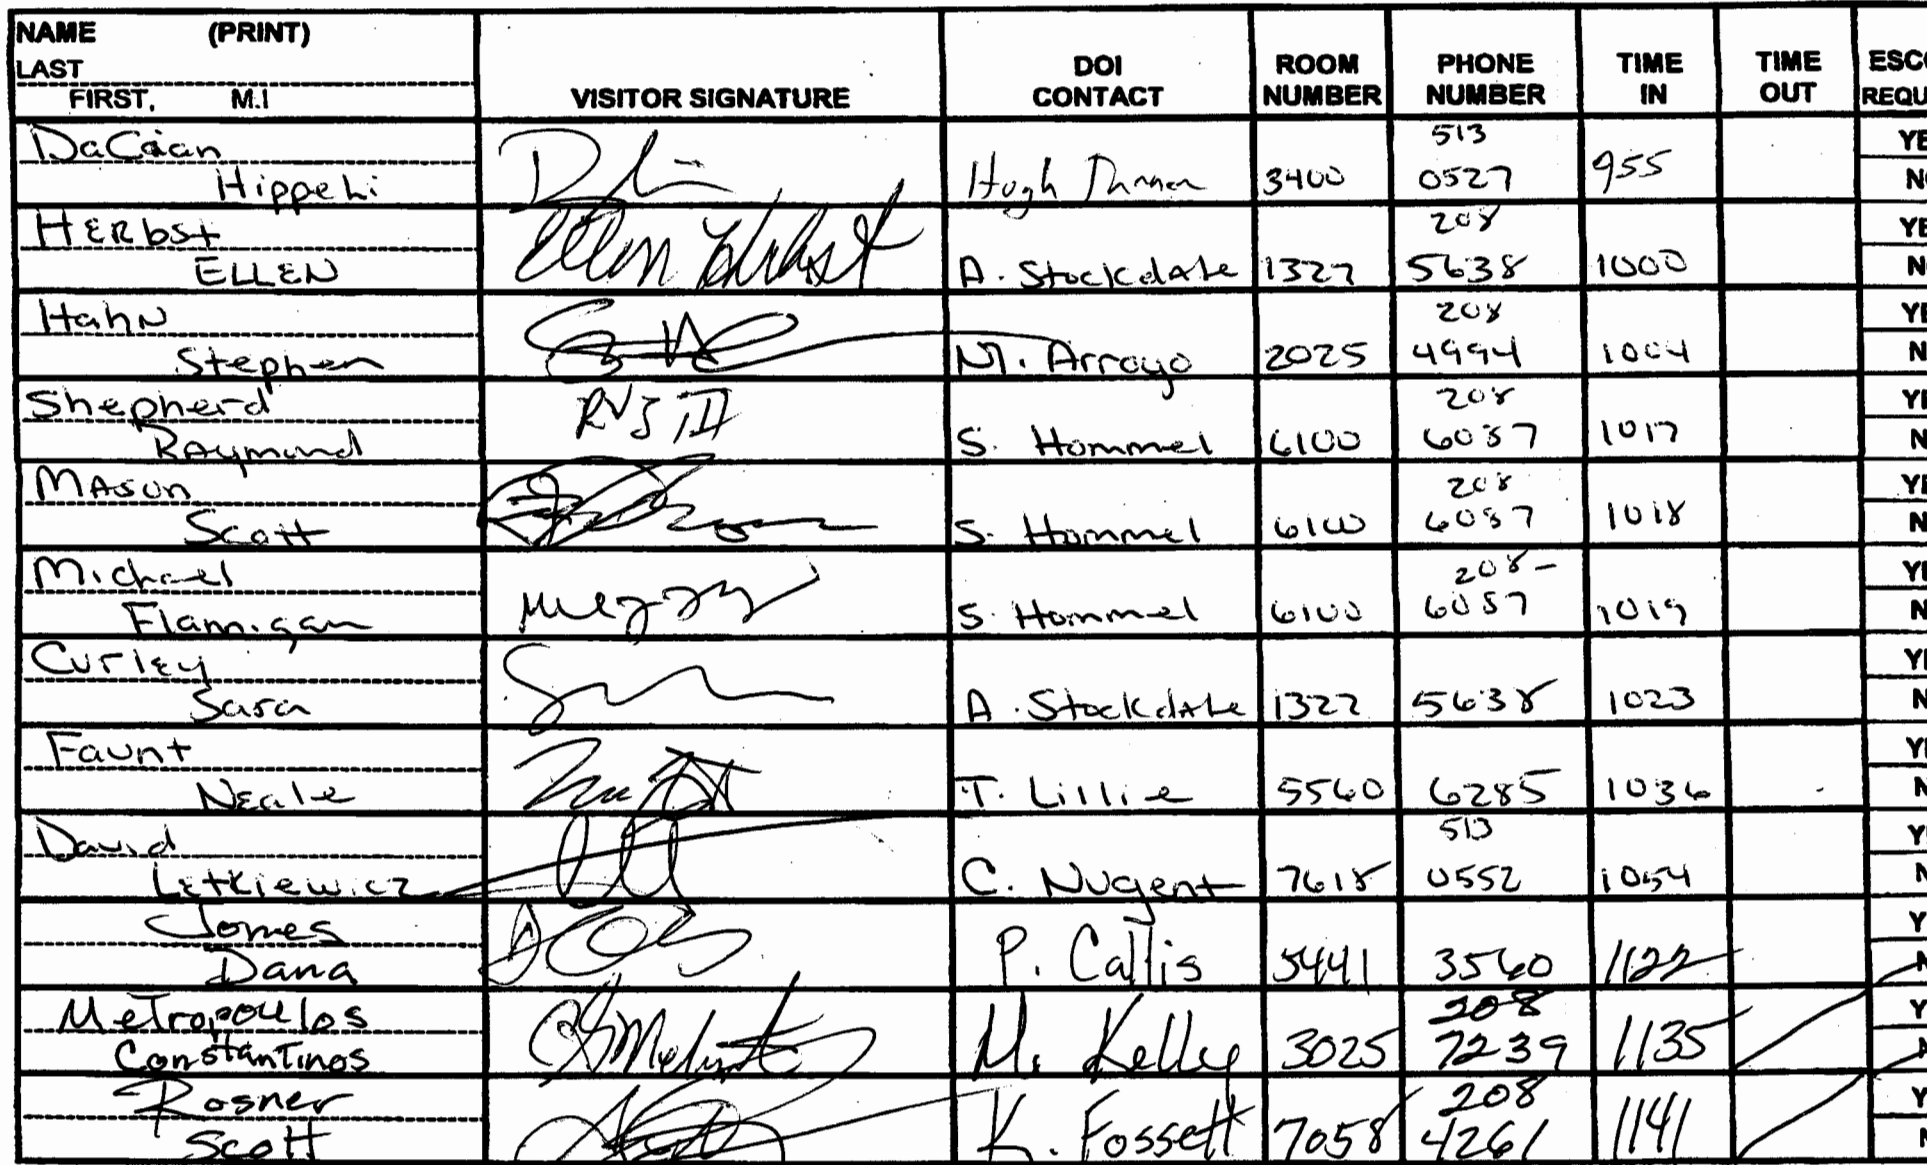 NAME (PRINT)
LAST
FIRST, M.I
VISITOR SIGNATURE
DOI CONTACT
ROOM NUMBER
PHONE NUMBER
TIME IN
TIME OUT
ESCO
REQU
DaCaan Hippeli Hugh 3400 513 0527 955 YE N
HERbst ELLEN Ellen Herbst A. Stockdale 1327 208 5638 1000 YE N
HahN Stephen M. Arroyo 2025 208 4994 1004 YE N
Shepherd Raymond RVS III S. Hommel 6100 208 6057 1017 YE N
MASon Scott S. Hommel 6100 208 6057 1018 YE N
Michael Flannigan S. Hommel 6100 208- 6057 1019 YE N
Curley Sara A. Stockdale 1322 5638 1023 YE N
Faunt Neale T. Lillie 5560 6285 1036 YE N
David Letkiewicz C. Nugent 7618 513 0552 1054 YE N
Jomes Dana P. Callis 5441 3560 1122 Y N
MeTropoulos ConstanTinos M. Kelly 3025 208 7239 1135 Y N
Rosner Scott K. Fossett 7058 208 4261 1141 Y N